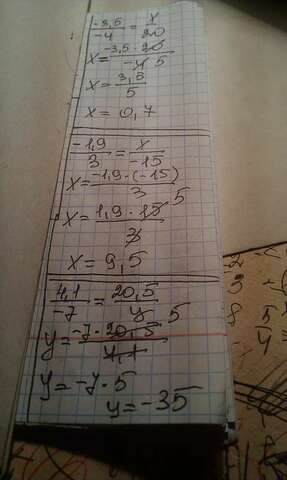 -3,5/-4 = x/20
x = -3,5 · 20/-4 5
x = 3,5/5
x = 0,7
-1,9/3 = x/-15
x = -1,9 · (-15)/3
x = 1,9 · 15 5/3
x = 9,5
4,1/-7 = 20,5/y
y = -7 · 20,5 5/4,1
y = -7 · 5
y = -35